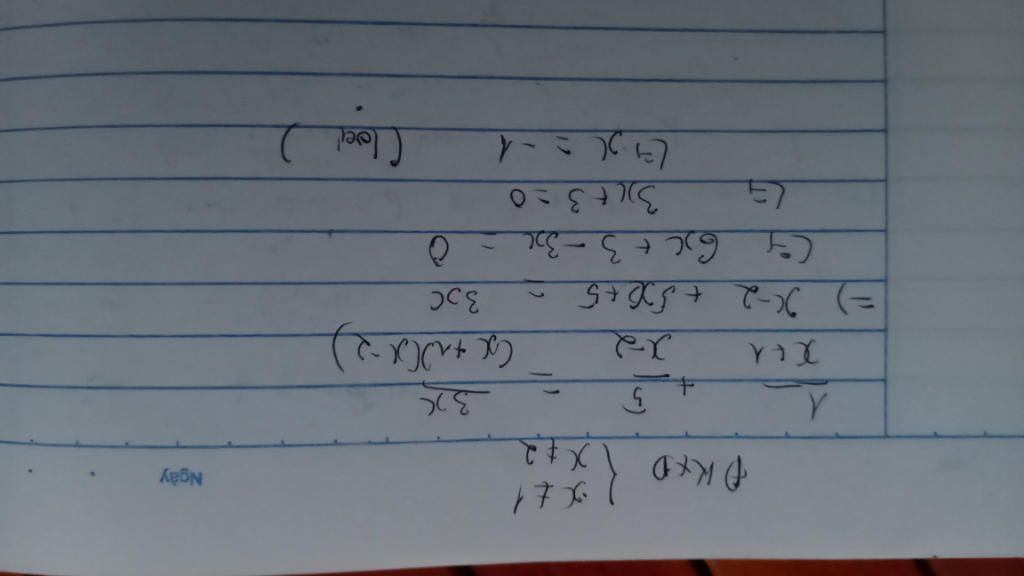 ĐKXĐ { x ≠ 1
x ≠ 2
Ngày
1/(x+1) + 5/(x-2) = 3x/((x+1)(x-2))
=) x-2 + 5x+5 = 3x
(=) 6x + 3 - 3x = 0
(=) 3x + 3 = 0
(=) x = -1 (loại)